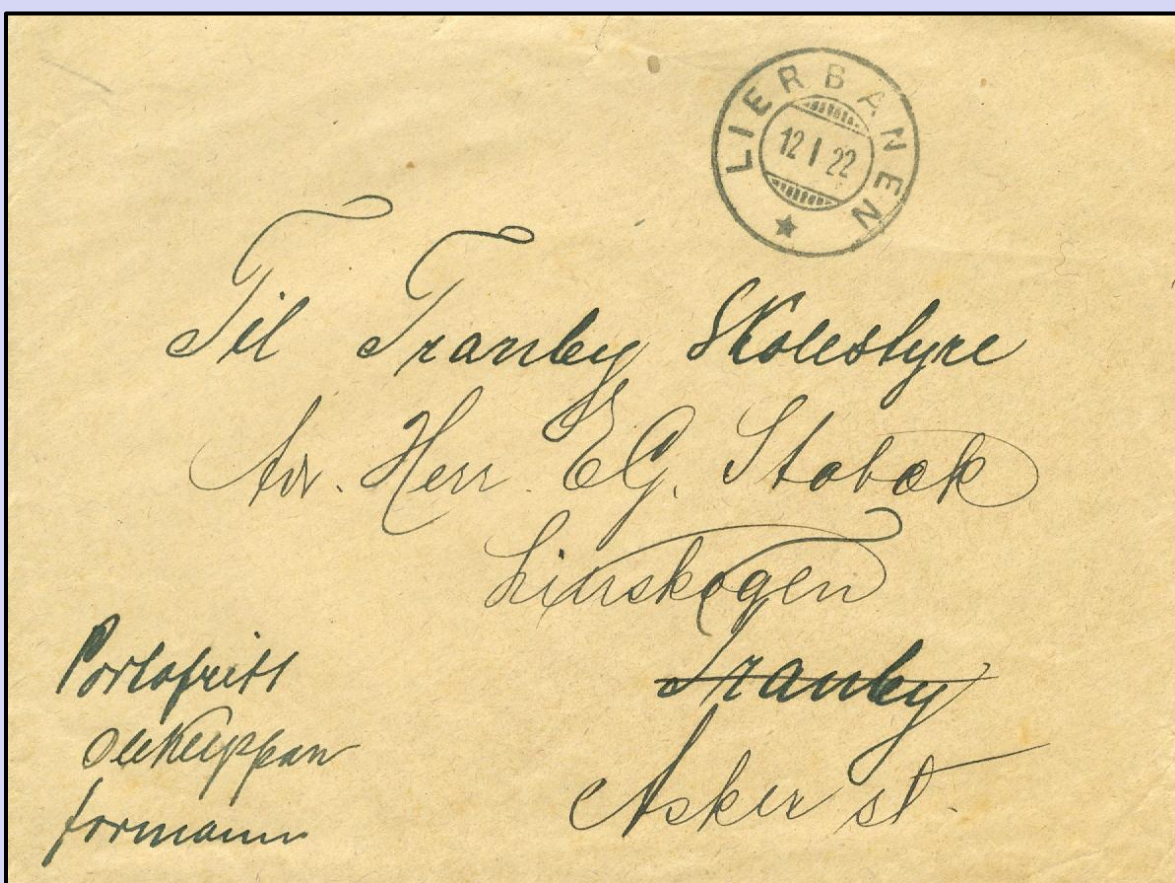 LIERBANEN
12 I 22
Til Tranby Skolestyre
Adr. Herr. E.G. Stabæk
Lierskogen
Tranby
Asker st.
Portofritt
formann